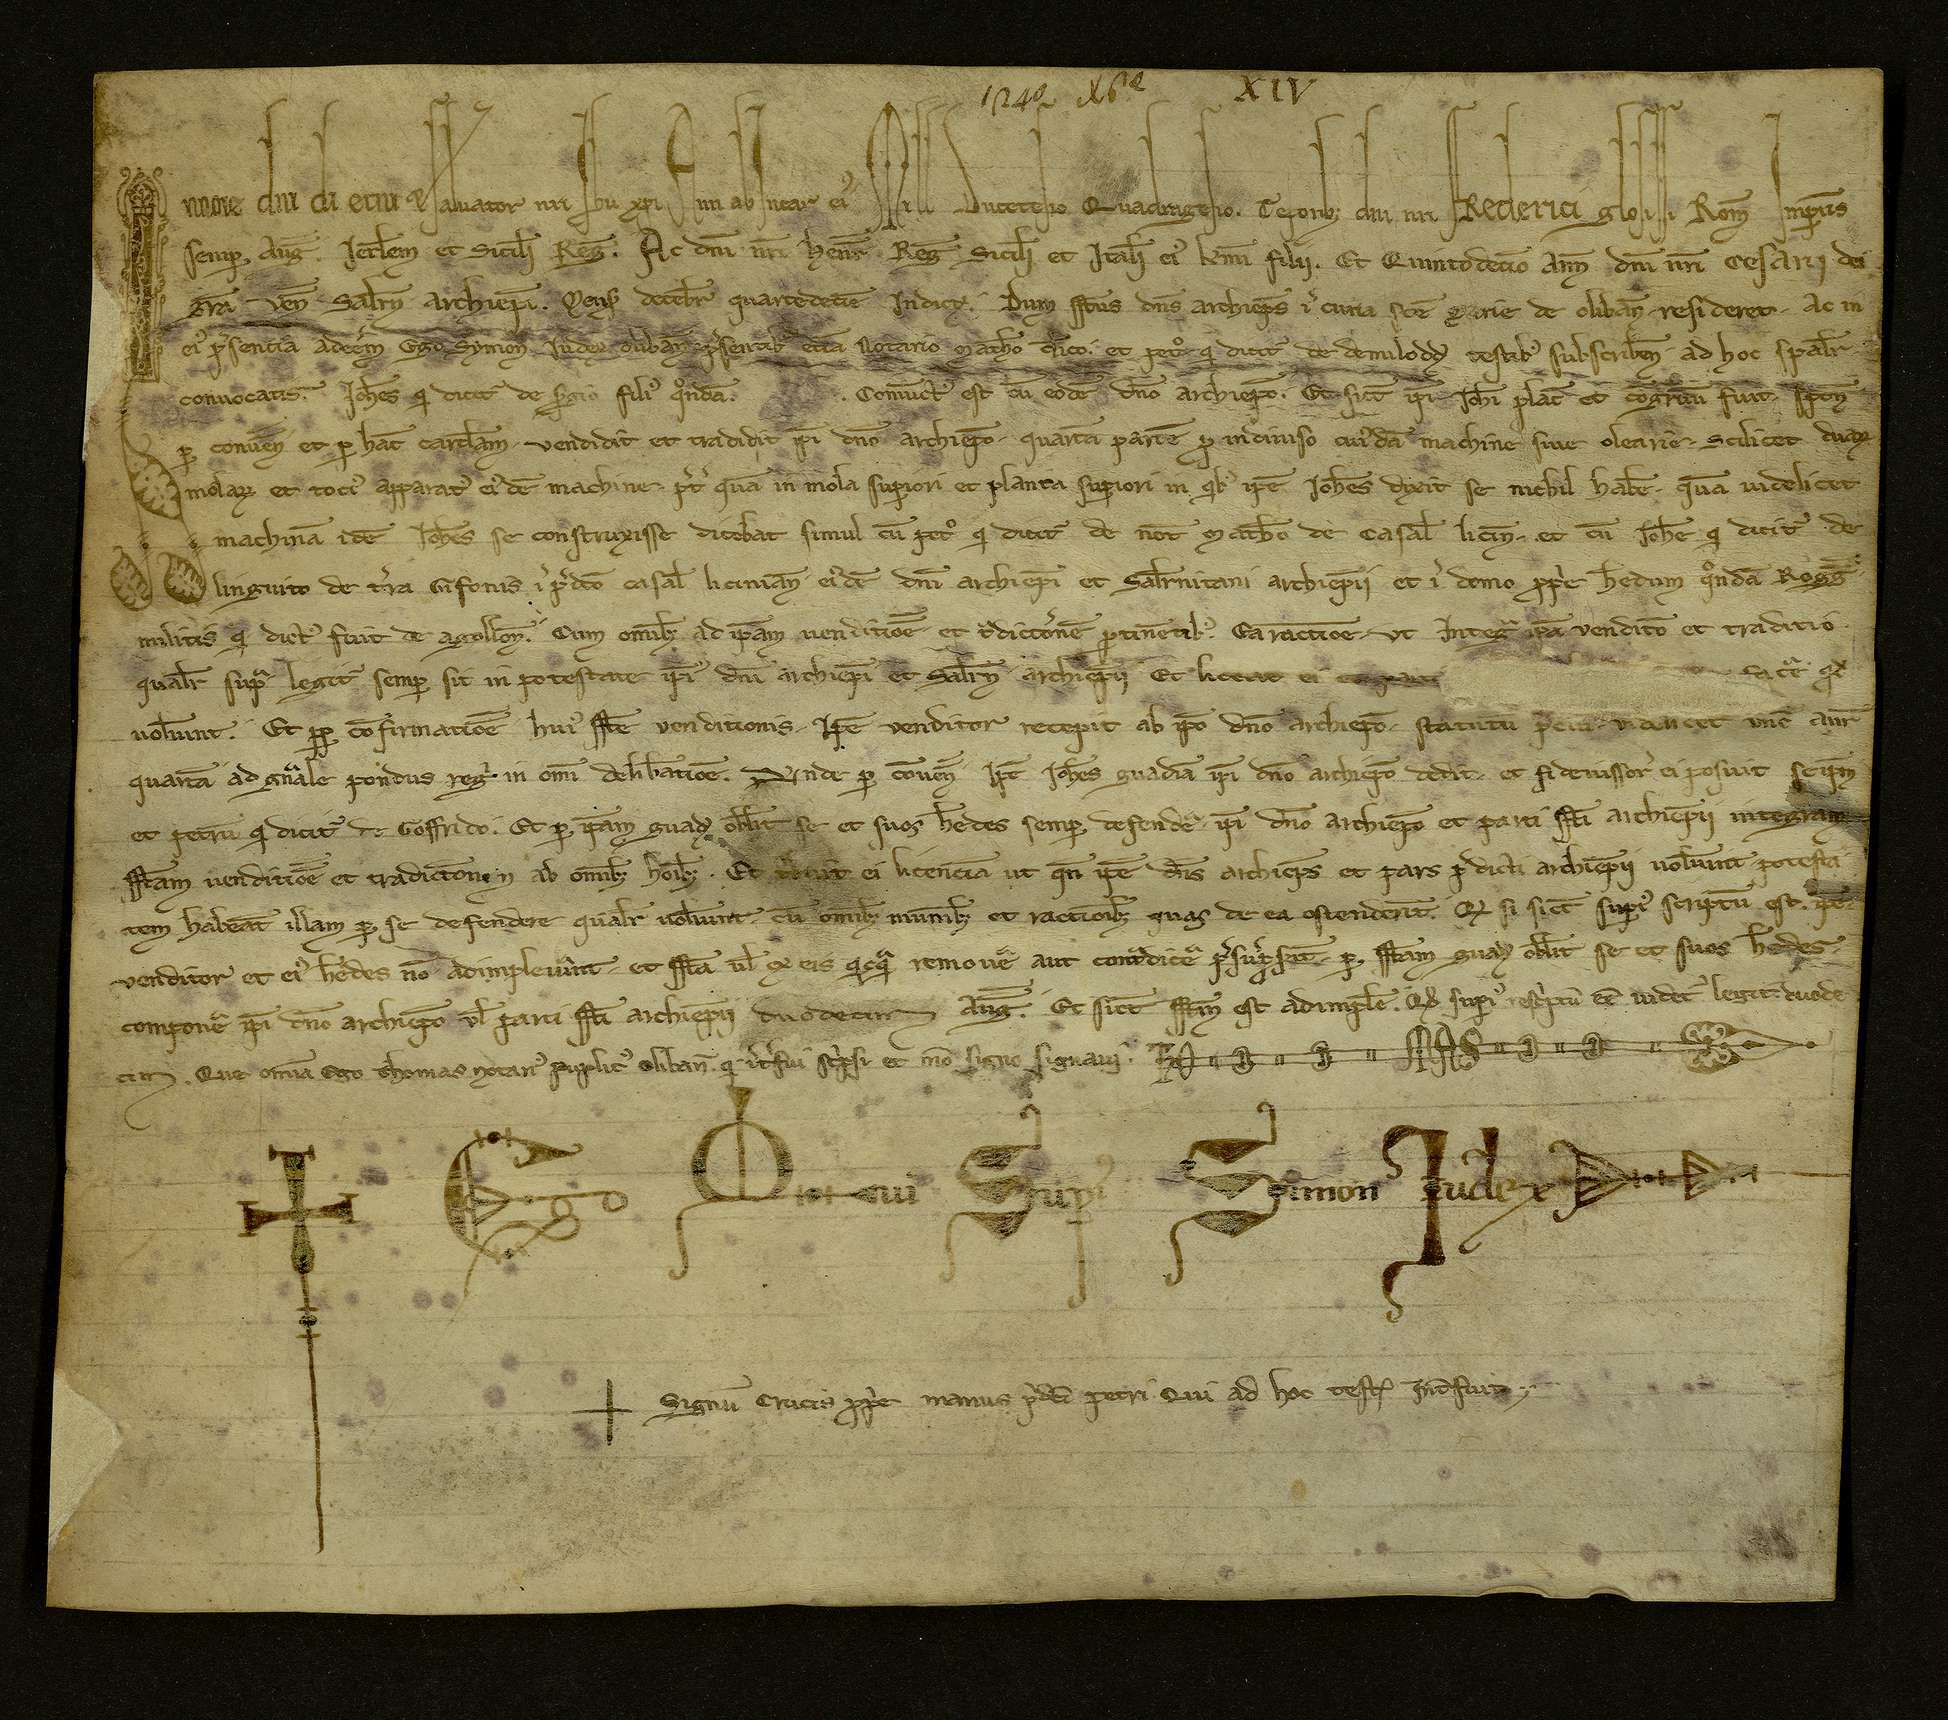 1240 Xbre XIV
In nomine dni di etni & salvator nri Ihu xpi Anni ab Incar ei Mill Ducetesio Quadragesio. Tepori dni nri Frederici gloriosi Rom Imptis
semp Aug. Ierlem et Sicili Reg. Ac dni nri Henr Reg Sicili et Itali ei kmi filii. Et Quintodecio Anno dni nri Cesarii dei
gra ven Salrn archiepi. Mens decebr quartedecie Indict. Dum ffatus dns archieps i curia sce Marie de oliban resideret. Ac in
ei psentia adectim Ego Symon Iudex oliban psentib etia Notario Matho clico. et pet q dicit de testib subscriben ad hoc spalr
convocatis. Iohes q dicit de Sgio filius qonda. Convict est cu eode dno archiepo. Et sict ipi Iohi plac et cogruu fuit.
p conven et p hac cartlam. vendidit et tradidit ipi dno archiepo. quarta parte p indiviso cuida machine sive olearie. scilicet duar
molar et toti apparat eide machine. pt qua in mola supiori et planta supiori in qb ipe Iohes dixit se nichil habe. qua videlicet
machina ide Iohes se construxisse dicebat simul cu pet q dicit de not Matho de Casal licin. et cu Iohe q dicit de
linguito de tra Gifonis i pdco casal licinian eide dni archiepi et Salrnitani archiepii et i domo ppe hedum qonda Rogg
militis q dict fuit de agollon. Cum omib ad ipam venditioe et tdictone ptinetib. Ea ractioe. ut Integ ipa vendito et traditio
qualr supa legit semp sit in potestate ipi dni archiepi et Salrn archiepii Et liceat ei fac qd
voluint. Et pp cofirmatioe hui ffte venditionis. Ipe venditor recepit ab ipo dno archiepo. statutu pciu. videlicet unc aur
quarta ad gnale pondus reg in omi delibatioe. Unde p conven Ipe Iohes guadia ipi dno archiepo dedit. et fideiussor ei posuit seipm
et petru q dicit de Goffrido. Et p ipam guad oblit se et suos hedes semp defende ipi dno archiepo et parti ffti archiepii integram
fftam venditioe et tradictonem ab omib hoib. Et tbuit ei licencia ut qn ipe dns archieps et pars pdicti archiepii voluint potesta
tem habeat illam p se defendere qualr voluint. cu omib munib et ractionib quas de ea ostenderit. Qd si sict supi scriptu est. ipe
venditor et ei hedes no adimpleverint. et ffta vl ex eis qicqa remove aut contdice psupserit. p fftam guad oblit se et suos hedes
compone ipi dno archiepo vl parti ffti archiepii duodecim Aug. Et sict fftm est adimple. Qd supi rescriptu e videt legit duode
cim. Que omia Ego thomas notari puplic oliban. qi itfui scripsi et meo signo signavi. THOMAS
Ego Qui Supi Simon Iudex
Signu Crucis ppe manus pdci petri Qui ad hoc testis Intfuit